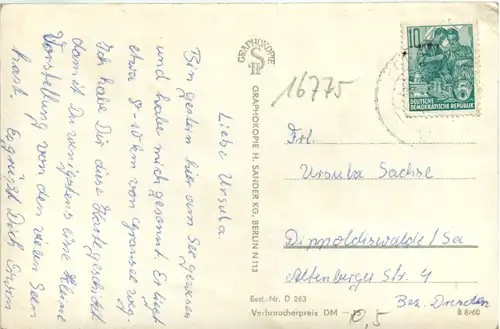 Liebe Ursula.
Bin gestern hier am See gewesen
und habe mich gesonnt. Er liegt
etwa 8-10 km von Gransee weg.
Ich habe Dir diese Karte geschickt
damit Du wenigstens eine kleine
Vorstellung von den vielen Seen
hast. Es grüßt Dich Erwin
GRAPHOKOPIE
GRAPHOKOPIE H. SANDER KG, BERLIN N 113
16775
10
DEUTSCHE
DEMOKRATISCHE REPUBLIK
Frl.
Ursula Sachse
Dippoldiswalde/Sa
Altenberger Str. 4
Bez. Dresden
Best.-Nr. D 263
Verbraucherpreis DM
0,5
B 8/60